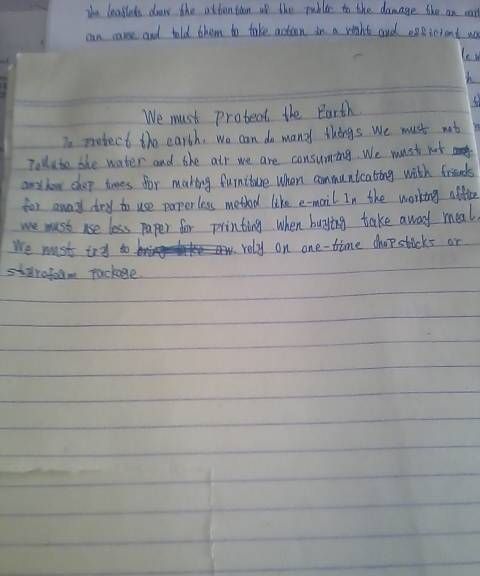 The leaflets draw the attention of the public to the damage the an
can cause and told them to take action in a right and efficient
We must Protect the Earth
To protect the earth. we can do many things We must not
Pollute the water and the air we are consuming. We must not
chop trees for making furniture When communicating with friends
far away try to use paperless method like e-mail In the working office
we must use less Paper for printing When buying take away meal.
We must try to rely on one-time chopsticks or
starofoam Package